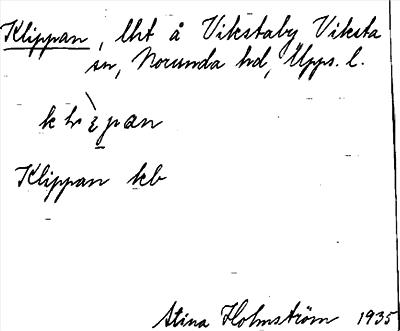 Klippan, lht å Vikstaby Viksta
sn, Norunda hd, Upps. l.
Klippan kb
Stina Holmström 1935